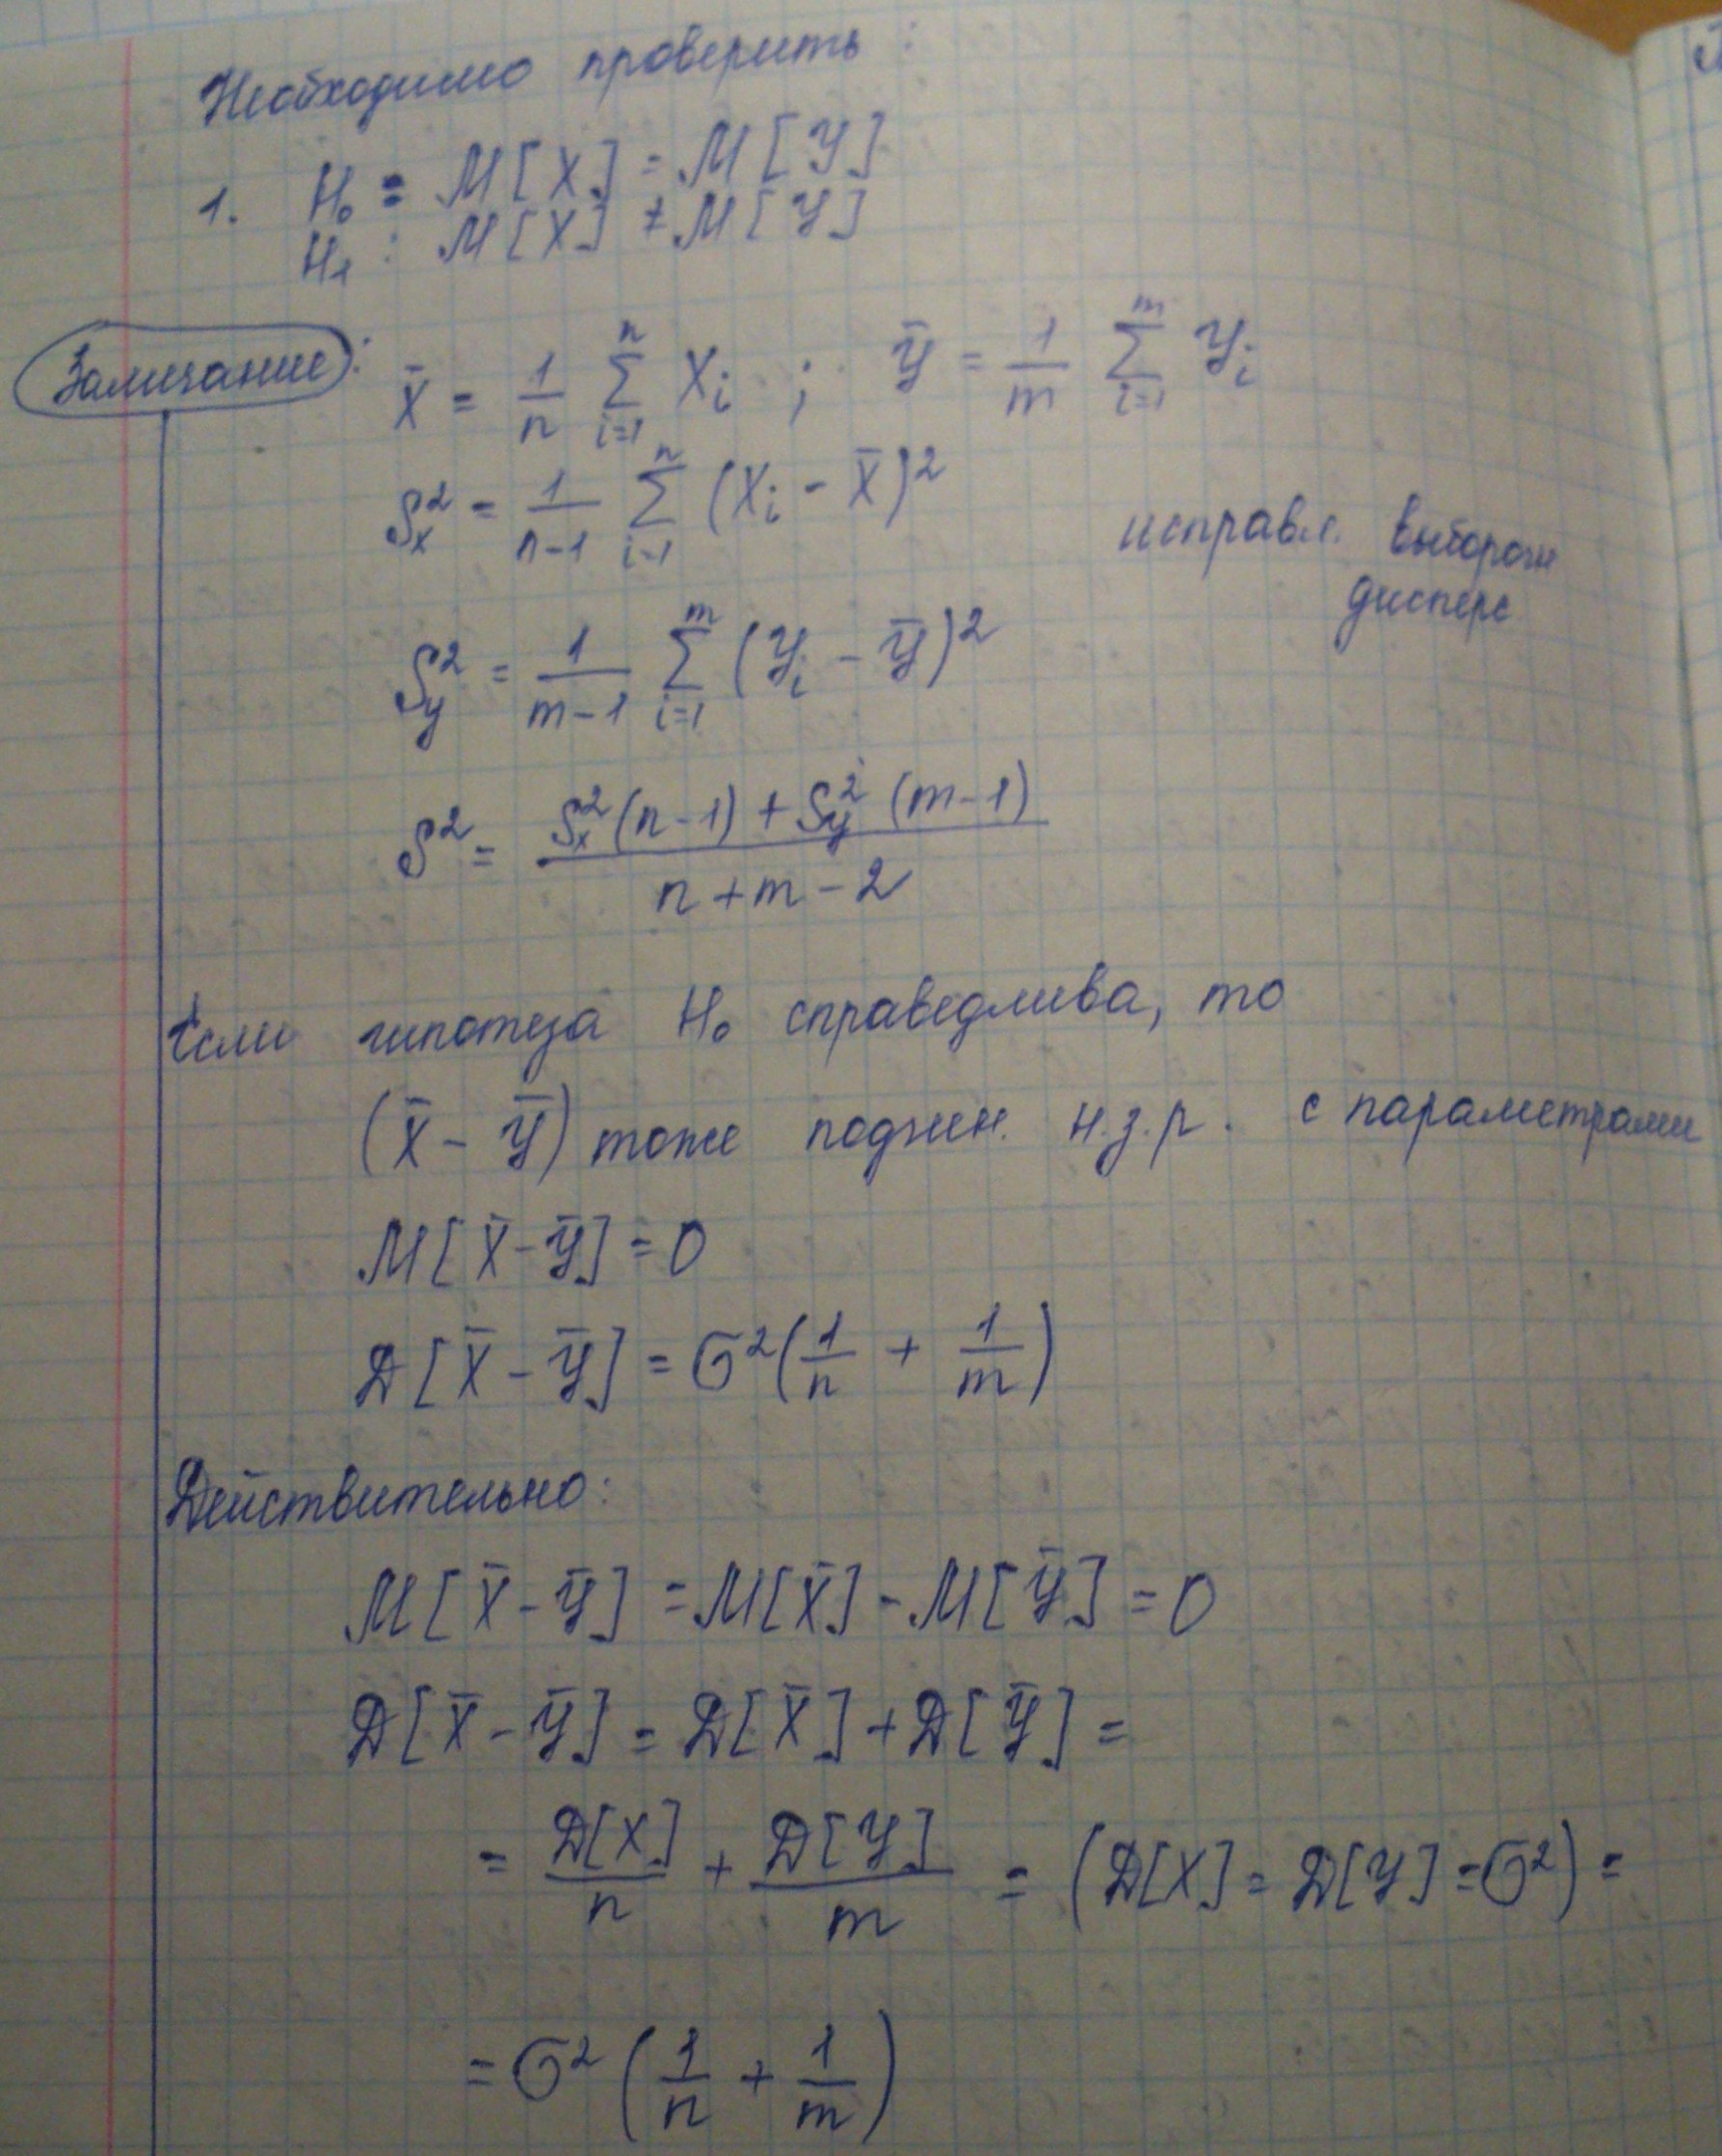 Необходимо проверить:
1. H₀ : M[X] = M[Y]
H₁ : M[X] ≠ M[Y]
Замечание: X̄ = 1/n ∑_{i=1}^{n} Xᵢ ; Ȳ = 1/m ∑_{i=1}^{m} Yᵢ
Sₓ² = 1/(n-1) ∑_{i=1}^{n} (Xᵢ - X̄)²
исправл. выбороч
дисперс
S_y² = 1/(m-1) ∑_{i=1}^{m} (Yᵢ - Ȳ)²
S² = (Sₓ²(n-1) + S_y²(m-1))/(n+m-2)
Если гипотеза H₀ справедлива, то
(X̄ - Ȳ) тоже подчин. н.з.р. с параметрами
M[X̄-Ȳ] = 0
D[X̄ - Ȳ] = σ²(1/n + 1/m)
Действительно:
M[X̄-Ȳ] = M[X̄] - M[Ȳ] = 0
D[X̄ - Ȳ] = D[X̄] + D[Ȳ] =
= D[X]/n + D[Y]/m = (D[X] = D[Y] = σ²) =
= σ² (1/n + 1/m)